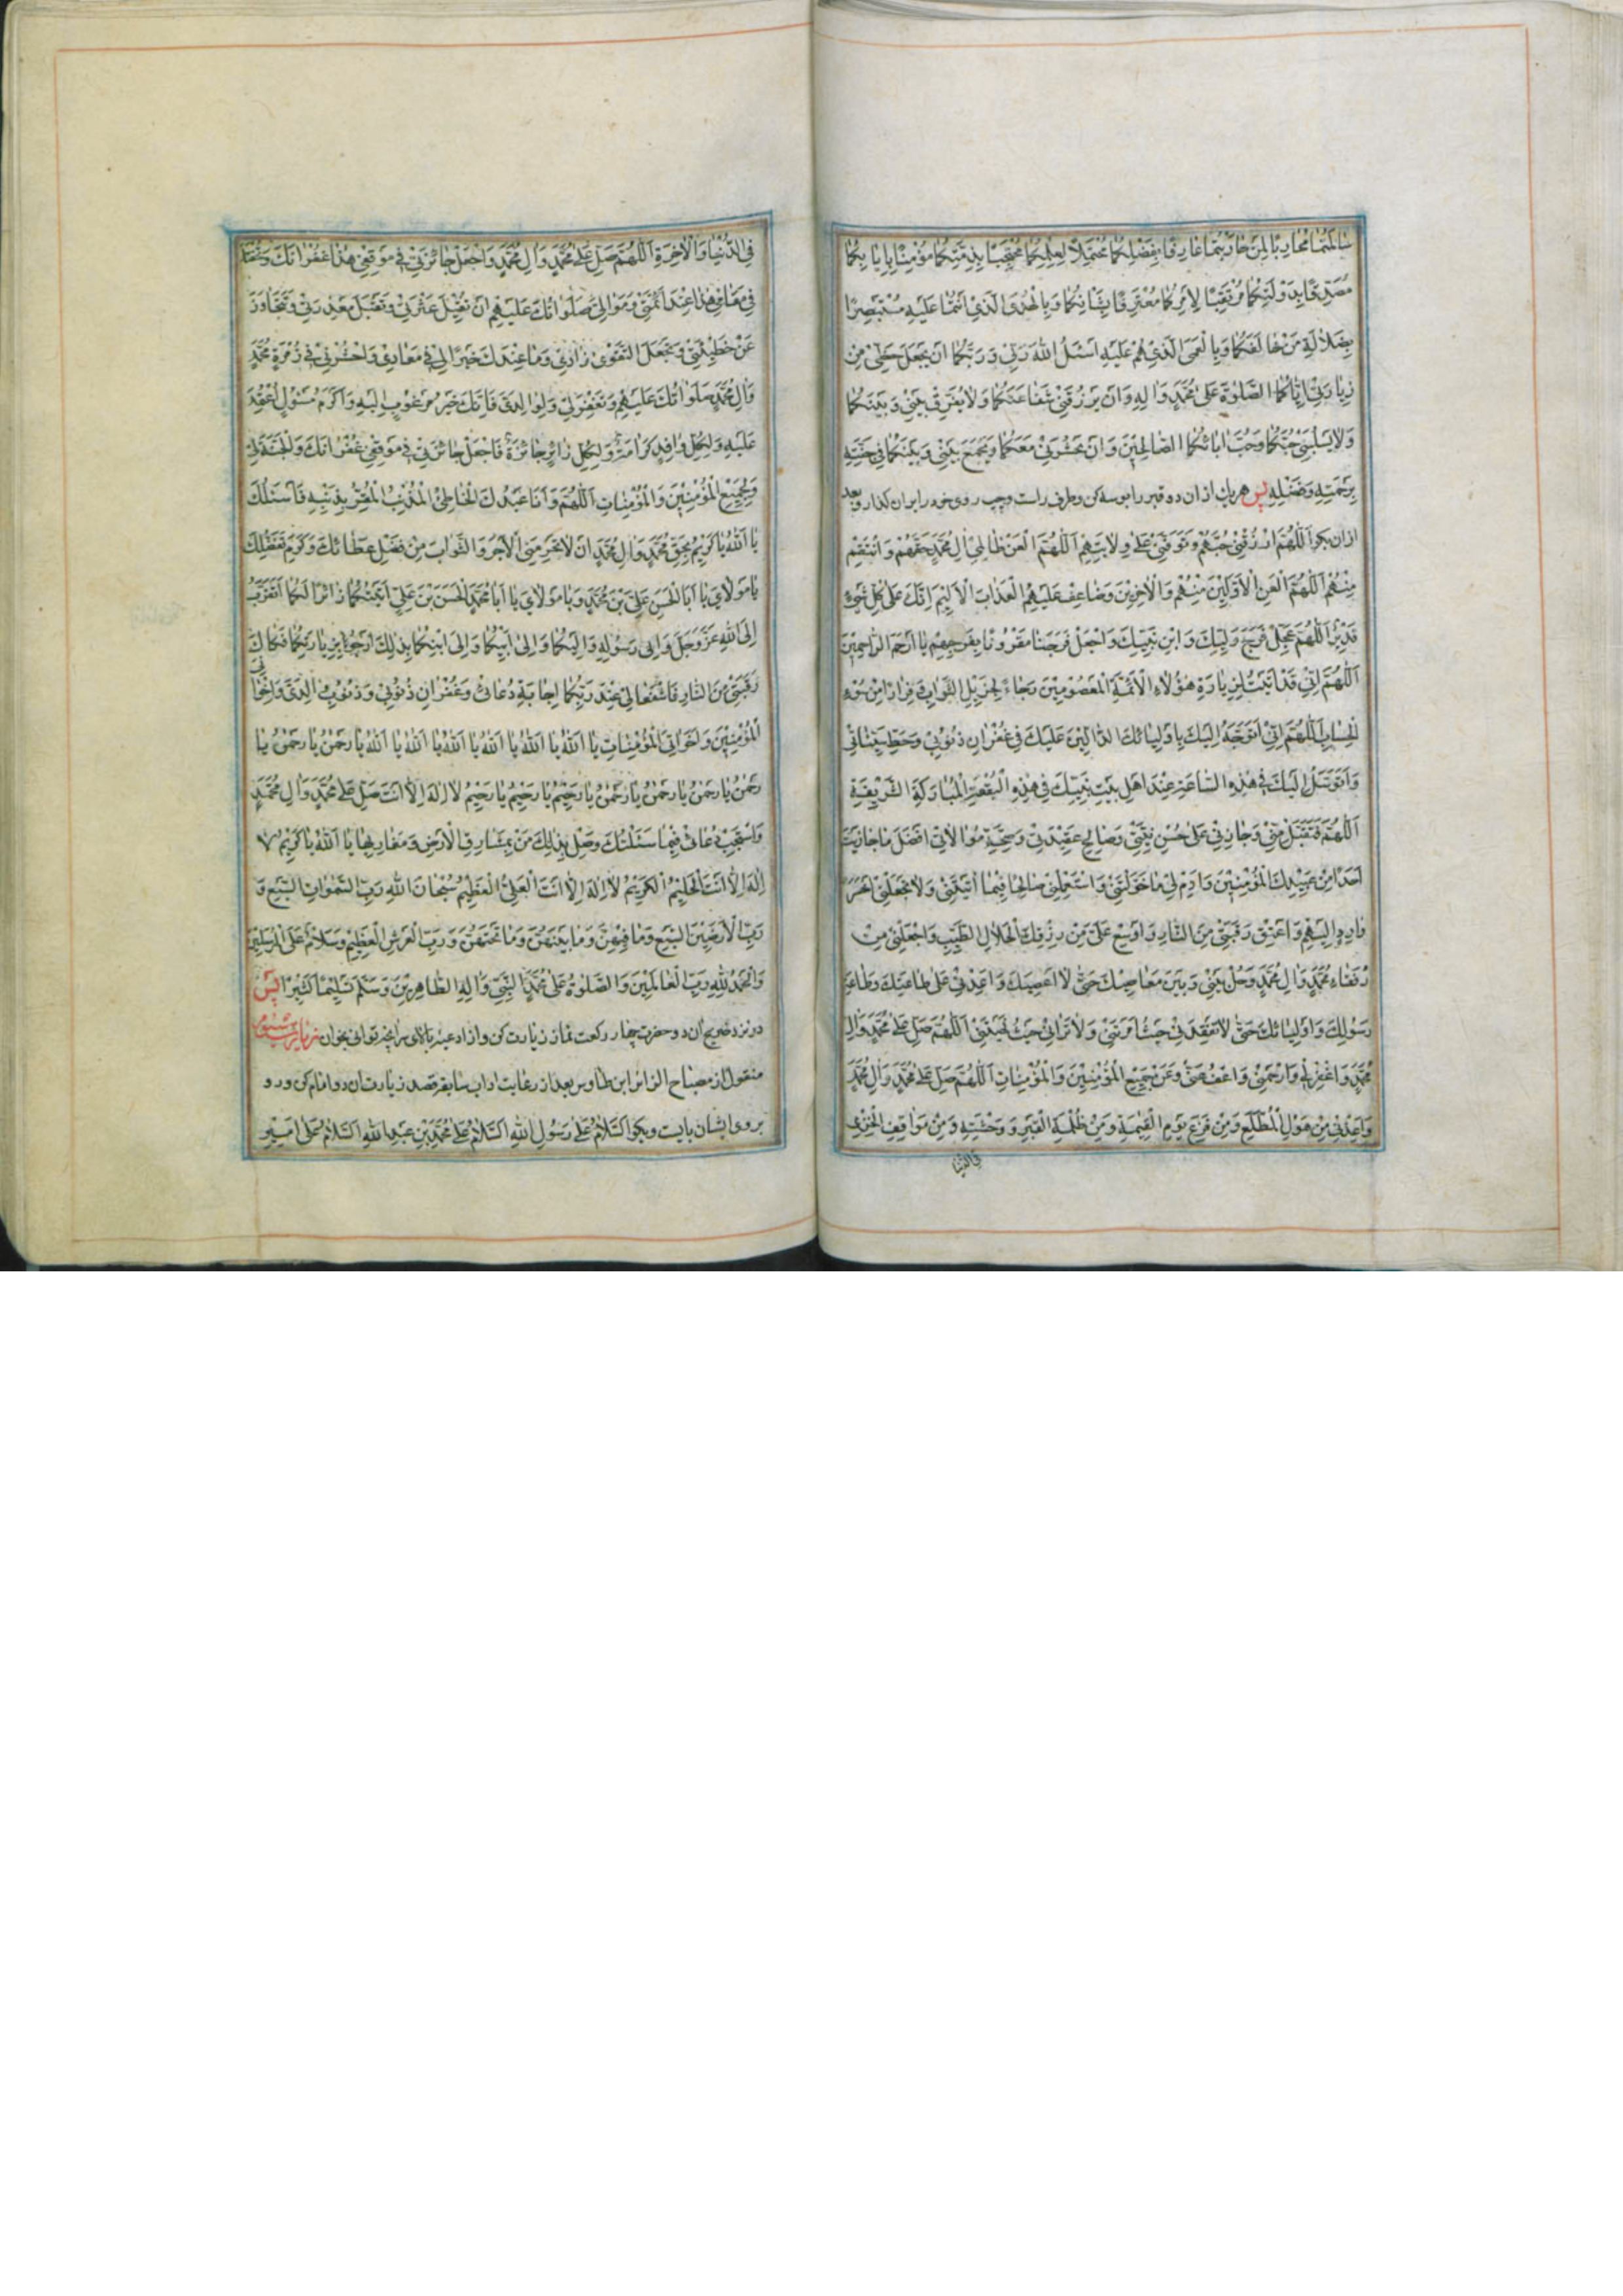 سٰالَمَكُمٰا مُحٰارِبًا لِمَنْ حٰارَبَكُمٰا عٰارِفًا بِفَضْلِكُمٰا مُحْتَمِلًا لِعِلْمِكُمٰا مُحْتَجِبًا بِذِمَّتِكُمٰا مُؤْمِنًا بِاِيٰابِكُمٰا
مُصَدِّقًا بِدَوْلَتِكُمٰا مُرْتَقِبًا لِاَمْرِكُمٰا مُعْتَرِفًا بِشَأْنِكُمٰا وَبِالْهُدَى الَّذِي اَنْتُمٰا عَلَيْهِ مُسْتَبْصِرًا
بِضَلٰالَةِ مَنْ خٰالَفَكُمٰا وَبِالْعَمَى الَّذِي هُمْ عَلَيْهِ اَسْئَلُ اللّٰهَ رَبِّي وَرَبَّكُمٰا اَنْ يَجْعَلَ حَظِّي مِنْ
زِيٰارَتِي اِيّٰاكُمٰا الصَّلٰوةَ عَلىٰ مُحَمَّدٍ وَاٰلِهِ وَاَنْ يَرْزُقَنِي شَفٰاعَتَكُمٰا وَلٰا يُفَرِّقَ بَيْنِي وَبَيْنَكُمٰا
وَلٰا يَسْلُبَنِي حُبَّكُمٰا وَحُبَّ اٰبٰائِكُمٰا الصّٰالِحِينَ وَاَنْ يَحْشُرَنِي مَعَكُمٰا وَيَجْمَعَ بَيْنِي وَبَيْنَكُمٰا فِي جَنَّتِهِ
بِرَحْمَتِهِ وَفَضْلِهِ پس هر يك از ان دو قبر را بوسه كن وطرف راست وچپ روى خود را بر ان كذار وبعد
از ان بكو اَللّٰهُمَّ ارْزُقْنِي حُبَّهُمْ وَتَوَفَّنِي عَلىٰ وِلٰايَتِهِمْ اَللّٰهُمَّ الْعَنْ ظٰالِمِي اٰلِ مُحَمَّدٍ حَقَّهُمْ وَانْتَقِمْ
مِنْهُمْ اَللّٰهُمَّ الْعَنِ الْاَوَّلِينَ مِنْهُمْ وَالْاٰخِرِينَ وَضٰاعِفْ عَلَيْهِمُ الْعَذٰابَ الْاَلِيمَ اِنَّكَ عَلىٰ كُلِّ شَيْءٍ
قَدِيرٌ اَللّٰهُمَّ عَجِّلْ فَرَجَ وَلِيِّكَ وَابْنِ نَبِيِّكَ وَاجْعَلْ فَرَجَنٰا مَقْرُونًا بِفَرَجِهِمْ يٰا اَرْحَمَ الرّٰاحِمِينَ
اَللّٰهُمَّ اِنِّي قَدْ اَتَيْتُ لِزِيٰارَةِ هٰؤُلٰاءِ الْاَئِمَّةِ الْمَعْصُومِينَ رَجٰاءً لِجَزِيلِ الثَّوٰابِ وَفِرٰارًا مِنْ سُوءِ
الْحِسٰابِ اَللّٰهُمَّ اِنِّي اَتَوَجَّهُ اِلَيْكَ بِاَوْلِيٰائِكَ الدّٰالِّينَ عَلَيْكَ فِي غُفْرٰانِ ذُنُوبِي وَحَطِّ سَيِّئٰاتِي
وَاَتَوَسَّلُ اِلَيْكَ فِي هٰذِهِ السّٰاعَةِ عِنْدَ اَهْلِ بَيْتِ نَبِيِّكَ فِي هٰذِهِ الْبُقْعَةِ الْمُبٰارَكَةِ الشَّرِيفَةِ
اَللّٰهُمَّ فَتَقَبَّلْ مِنِّي وَجٰازِنِي عَلىٰ حُسْنِ نِيَّتِي وَصٰالِحِ عَقِيدَتِي وَصِحَّةِ مُوٰالٰاتِي اَفْضَلَ مٰا جٰازَيْتَ
اَحَدًا مِنْ عَبِيدِكَ الْمُؤْمِنِينَ وَاَدِمْ لِي مٰا خَوَّلْتَنِي وَاسْتَعْمِلْنِي صٰالِحًا فِيمٰا اٰتَيْتَنِي وَلٰا تَجْعَلْنِي اَخْسَرَ
وٰارِدٍ اِلَيْهِمْ وَاَعْتِقْ رَقَبَتِي مِنَ النّٰارِ وَاَوْسِعْ عَلَيَّ مِنْ رِزْقِكَ الْحَلٰالِ الطَّيِّبِ وَاجْعَلْنِي مِنْ
رُفَقٰاءِ مُحَمَّدٍ وَاٰلِ مُحَمَّدٍ وَحُلْ بَيْنِي وَبَيْنَ مَعٰاصِيكَ حَتّٰى لٰا اَعْصِيَكَ وَاَعِنِّي عَلىٰ طٰاعَتِكَ وَطٰاعَةِ
رَسُولِكَ وَاَوْلِيٰائِكَ حَتّٰى لٰا تَفْقِدَنِي حَيْثُ اَمَرْتَنِي وَلٰا تَرٰانِي حَيْثُ نَهَيْتَنِي اَللّٰهُمَّ صَلِّ عَلىٰ مُحَمَّدٍ وَاٰلِ
مُحَمَّدٍ وَاغْفِرْ لِي وَارْحَمْنِي وَاعْفُ عَنِّي وَعَنْ جَمِيعِ الْمُؤْمِنِينَ وَالْمُؤْمِنٰاتِ اَللّٰهُمَّ صَلِّ عَلىٰ مُحَمَّدٍ وَاٰلِ مُحَمَّدٍ
وَاَعِذْنِي مِنْ هَوْلِ الْمُطَّلَعِ وَمِنْ فَزَعِ يَوْمِ الْقِيٰمَةِ وَمِنْ ظُلْمَةِ الْقَبْرِ وَوَحْشَتِهِ وَمِنْ مَوٰاقِفِ الْخِزْيِ
فى الدنيا
فِي الدُّنْيٰا وَالْاٰخِرَةِ اَللّٰهُمَّ صَلِّ عَلىٰ مُحَمَّدٍ وَاٰلِ مُحَمَّدٍ وَاجْعَلْ جٰائِزَتِي فِي مَوْقِفِي هٰذٰا غُفْرٰانَكَ وَتُحْفَتَكَ
فِي مَقٰامِي هٰذٰا عِنْدَ اَئِمَّتِي وَمَوٰالِيَّ صَلَوٰاتُكَ عَلَيْهِمْ اَنْ تُقِيلَ عَثْرَتِي وَتَقْبَلَ مَعْذِرَتِي وَتَتَجٰاوَزَ
عَنْ خَطِيئَتِي وَتَجْعَلَ التَّقْوىٰ زٰادِي وَمٰا عِنْدَكَ خَيْرًا لِي فِي مَعٰادِي وَاحْشُرْنِي فِي زُمْرَةِ مُحَمَّدٍ
وَاٰلِ مُحَمَّدٍ صَلَوٰاتُكَ عَلَيْهِمْ وَتَغْفِرَ لِي وَلِوٰالِدَيَّ فَاِنَّكَ خَيْرُ مَرْغُوبٍ اِلَيْهِ وَاَكْرَمُ مَسْئُولٍ اعْتُمِدَ
عَلَيْهِ وَلِكُلِّ وٰافِدٍ كَرٰامَةٌ وَلِكُلِّ زٰائِرٍ جٰائِزَةٌ فَاجْعَلْ جٰائِزَتِي فِي مَوْقِفِي غُفْرٰانَكَ وَالْجَنَّةَ لِي
وَلِجَمِيعِ الْمُؤْمِنِينَ وَالْمُؤْمِنٰاتِ اَللّٰهُمَّ وَاَنَا عَبْدُكَ الْخٰاطِئُ الْمُذْنِبُ الْمُقِرُّ بِذَنْبِهِ فَاَسْئَلُكَ
يٰا اَللّٰهُ يٰا كَرِيمُ بِحَقِّ مُحَمَّدٍ وَاٰلِ مُحَمَّدٍ اَنْ لٰا تَحْرِمَنِي الْاَجْرَ وَالثَّوٰابَ مِنْ فَضْلِ عَطٰائِكَ وَكَرَمِ تَفَضُّلِكَ
يٰا مَوْلٰايَ يٰا اَبَا الْحَسَنِ عَلِيَّ بْنَ مُحَمَّدٍ وَيٰا مَوْلٰايَ يٰا اَبٰا مُحَمَّدٍ الْحَسَنَ بْنَ عَلِيٍّ اَتَيْتُكُمٰا زٰائِرًا لَكُمٰا اَتَقَرَّبُ
اِلَى اللّٰهِ عَزَّ وَجَلَّ وَاِلىٰ رَسُولِهِ وَاِلَيْكُمٰا وَاِلىٰ اَبِيكُمٰا وَاِلىٰ ابْنِكُمٰا بِذٰلِكَ اَرْجُو بِزِيٰارَتِكُمٰا فَكٰاكَ
رَقَبَتِي مِنَ النّٰارِ فَاشْفَعٰا لِي عِنْدَ رَبِّكُمٰا اِجٰابَةَ دُعٰائِي وَغُفْرٰانِ ذُنُوبِي وَذُنُوبِ وٰالِدَيَّ وَاِخْوٰانِيَ
الْمُؤْمِنِينَ وَاَخَوٰاتِيَ الْمُؤْمِنٰاتِ يٰا اَللّٰهُ يٰا اَللّٰهُ يٰا اَللّٰهُ يٰا اَللّٰهُ يٰا اَللّٰهُ يٰا اَللّٰهُ يٰا رَحْمٰنُ يٰا رَحْمٰنُ يٰا
رَحْمٰنُ يٰا رَحْمٰنُ يٰا رَحْمٰنُ يٰا رَحْمٰنُ يٰا رَحِيمُ يٰا رَحِيمُ يٰا رَحِيمُ لٰا اِلٰهَ اِلّٰا اَنْتَ صَلِّ عَلىٰ مُحَمَّدٍ وَاٰلِ مُحَمَّدٍ
وَاسْتَجِبْ دُعٰائِي فِيمٰا سَئَلْتُكَ وَصِلْ بِذٰلِكَ مَنْ بِمَشٰارِقِ الْاَرْضِ وَمَغٰارِبِهٰا يٰا اَللّٰهُ يٰا كَرِيمُ لٰا
اِلٰهَ اِلّٰا اَنْتَ الْحَلِيمُ الْكَرِيمُ لٰا اِلٰهَ اِلّٰا اَنْتَ الْعَلِيُّ الْعَظِيمُ سُبْحٰانَ اللّٰهِ رَبِّ السَّمٰوٰاتِ السَّبْعِ وَ
رَبِّ الْاَرَضِينَ السَّبْعِ وَمٰا فِيهِنَّ وَمٰا بَيْنَهُنَّ وَمٰا تَحْتَهُنَّ وَرَبِّ الْعَرْشِ الْعَظِيمِ وَسَلٰامٌ عَلَى الْمُرْسَلِينَ
وَالْحَمْدُ لِلّٰهِ رَبِّ الْعٰالَمِينَ وَالصَّلٰوةُ عَلىٰ مُحَمَّدٍ النَّبِيِّ وَاٰلِهِ الطّٰاهِرِينَ وَسَلَّمَ تَسْلِيمًا كَثِيرًا پس
در نزد ضريح ان دو حضرت چهار ركعت نماز زيارت كن واز ادعيه بالاى سر انچه توانى بخوان زيارت سيوم
منقول از مصباح الزائر ابن طاوس بعد از رعايت اداب سابقه قصد زيارت ان دو امام كن ورو
بروى ايشان بايست وبكو اَلسَّلٰامُ عَلىٰ رَسُولِ اللّٰهِ اَلسَّلٰامُ عَلىٰ مُحَمَّدِ بْنِ عَبْدِ اللّٰهِ اَلسَّلٰامُ عَلىٰ اَمِيرِ